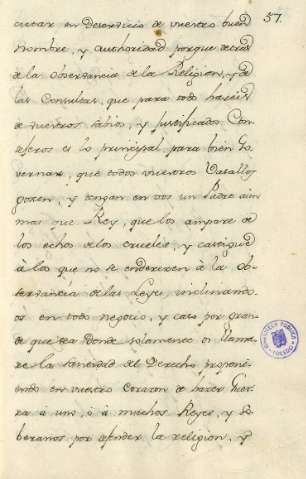 57.
cutar en Deservicio de vuestro buen
nombre, y authoridad porque detras
de la observancia de la Religion, y de
las Consultas, que para todo haveis
de vuestros sabios, y justificados Con
sejeros es lo principal para bien Go
vernar, que todos vuestros Vasallos
posean, y tengan en vos un Padre aun
mas que Rey, que los ampare de
los echos de los crueles, y castigue
à los que no se enderesen à la ob-
servancia de las Leyes, inclinando
os en todo negocio, y caso por gran-
de que sea donde solamente os llama-
re la severidad del Derecho proponi-
endo en vuestro Corazon de hazer Guer-
ra à uno, ò à muchos Reyes, y So-
beranos por ofender la religion, y
BIBLIOTECA PUBLICA
TOLEDO